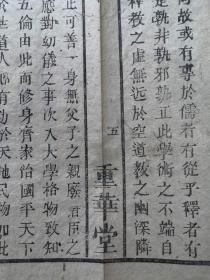 何故或有專於儒者有從乎釋者有
是孰非孰邪孰正此學術之不端自
釋教之虛無近於空道教之幽深隣
五
重華堂
止可善一身無父子之親廢君臣之
應對幼儀之事次入大學格物致知
五倫由此而修身齊家治國平天下
於世道人心有功於天地民物如此